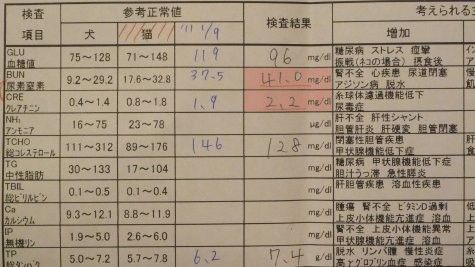 検査 参考正常値 検査結果 考えられる主
項目 犬 猫 '11 1/9 増加
GLU 75～128 71～148 119 96 mg/dl 糖尿病 ストレス 痙攣
血糖値 振戦(ネコの場合) 摂食後
BUN 9.2～29.2 17.6～32.8 37.5 41.0 mg/dl 腎不全 心疾患 尿道閉塞
尿素窒素 アジソン病 脱水
CRE 0.4～1.4 0.8～1.8 1.9 2.2 mg/dl 糸球体濾過機能低下
クレアチニン 尿毒症
NH₃ 16～75 23～78 μg/dl 肝不全 肝性シャント
アンモニア 胆管肝炎 肝硬変 胆管閉塞
TCHO 111～312 89～176 146 128 mg/dl 閉塞性胆管疾患
総コレステロール 甲状腺機能低下症
TG 30～133 17～104 mg/dl 糖尿病 甲状腺機能低下症
中性脂肪 胆汁うっ滞 急性膵炎
TBIL 0.1～0.5 0.1～0.4 mg/dl 肝胆管疾患 溶血性疾患
総ビリルビン
Ca 9.3～12.1 8.8～11.9 mg/dl 腫瘍 腎不全 ビタミンD過剰
カルシウム 上皮小体機能亢進症 溶血
IP 1.9～5.0 2.6～6.0 mg/dl 腎不全 上皮小体機能異常
無機リン 甲状腺機能亢進症 溶血
TP 5.0～7.2 5.7～7.8 6.2 7.4 g/dl 脱水 リンパ腫 慢性炎症
総タンパク 高γグロブリン血症 感染症